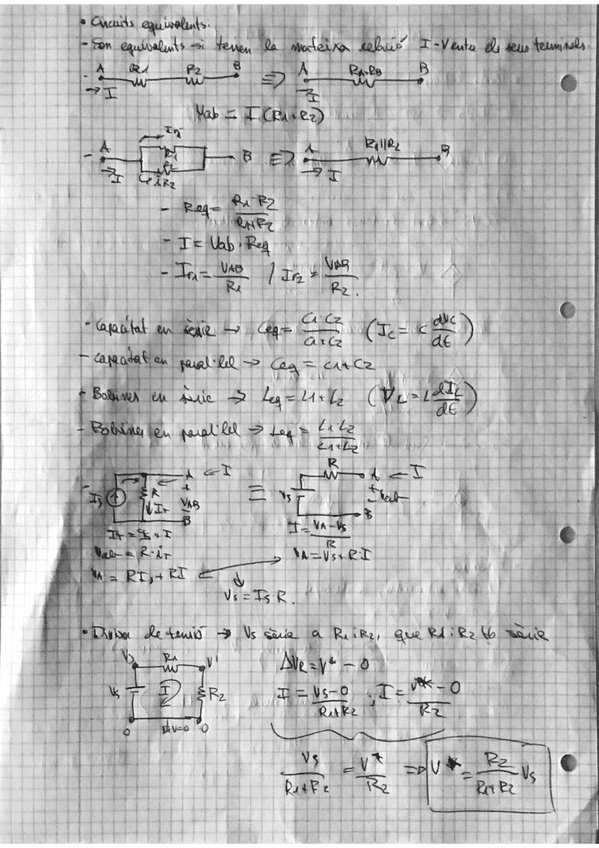 • Circuits equivalents.
- Són equivalents si tenen la mateixa relació I-V entre els seus terminals
A R1 R2 B ≡ A R1+R2 B
→ I → I
Uab = I (R1+R2)
- A Ir1 R1 R2 Ir2 B ≡ A R1||R2 B
→ I → I
- Req = R1·R2 / R1+R2
- I = Uab·Req
- Ir1 = VAB / R1 / Ir2 = VAB / R2.
- Capacitat en sèrie → Ceq = C1·C2 / C1+C2 (Ic = C dVc / dt)
- Capacitat en paral·lel → Ceq = C1+C2
- Bobines en sèrie → Leq = L1+L2 (VL = L dIL / dt)
- Bobines en paral·lel → Leq = L1L2 / L1+L2
Is R IT A ← I + VAB - B ≡ Vs R A ← I + Vab - B
IT = Is + I I = VA-Vs / R
Vab = R·iT VA = Vs + R·I
VA = RIs + RI
Vs = Is·R.
• Divisor de tensió → Vs sèrie a R1 i R2, que R1 i R2 sèrie
Vs R1 V* ΔVR = V* - 0
Vs I R2 I = Vs-0 / R1+R2 ; I = V*-0 / R2
0 V=0 0
Vs / R1+R2 = V* / R2 ⇒ V* = R2 / R1+R2 Vs